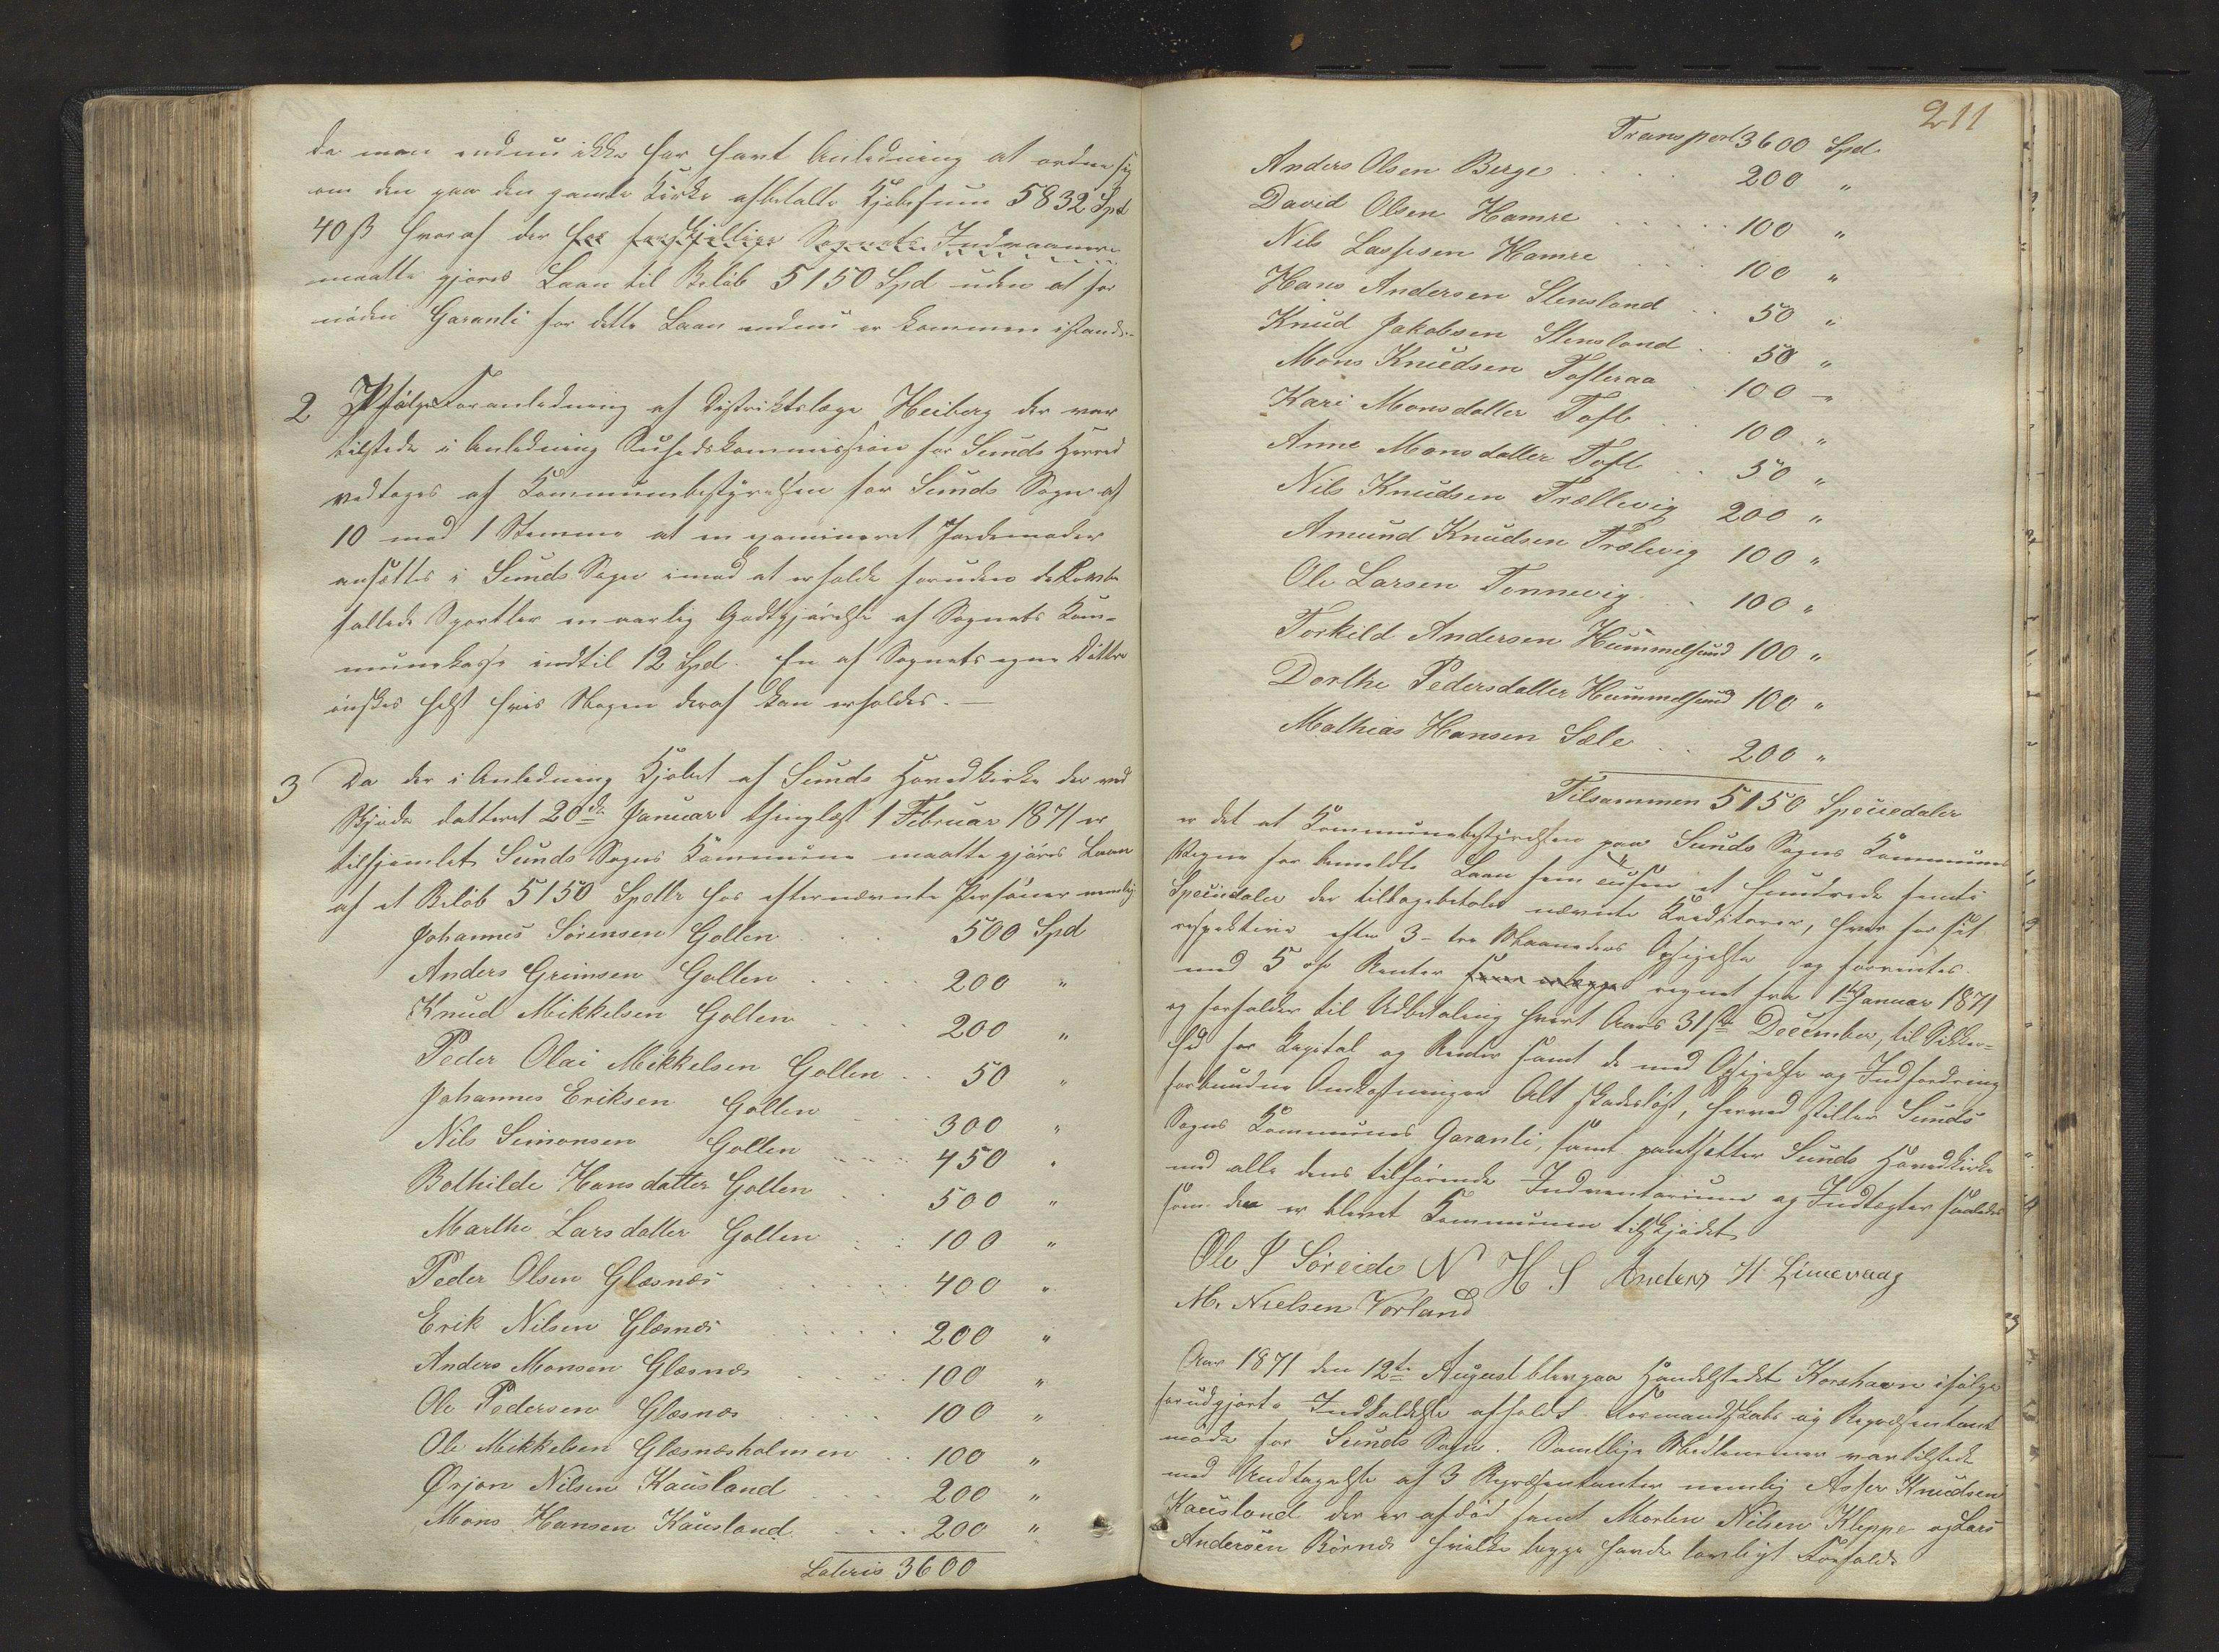 da man endnu ikke har havt Anledning at ordne sig
om den paa den gamle Kirke afbetalte Kjøbesum 5832 Spd
40 ß hvoraf der hos forskjellige Sognets Indvaanere
maatte gjøres Laan til Beløb 5150 Spd uden at for
nøden Garanti for dette Laan endnu er kommen istand.-
2 Ifølge Foranledning af Distriktslæge Heiberg der var
tilstede i Anledning Sunhedskommission for Sunds Herred
vedtoges af Kommunebestyrelsen for Sunds Sogn af
10 mod 1 Stemme at en examineret Jordemoder
ansættes i Sunds Sogn imod at erholde foruden de lovbe
fallede Sportler en aarlig Godtgjørelse af Sognets Kom-
munekasse indtil 12 Spd. En af Sognets egne Døttre
ønskes helst hvis Nogen deraf kan erholdes. —
3 Da der i Anledning Kjøbet af Sunds Hovedkirke der ved
Skjøde datteret 20de Januar thinglæst 1 Februar 1871 er
tilhjemlet Sunds Sogns Kommune maatte gjøres Laan
af et Beløb 5150 Spdlr hos efternævnte Personer nemlig
Johannes Sørensen Golten . . . 500 Spd
Anders Grimsen Golten . . . . 200 "
Knud Mikkelsen Golten . . . 200 "
Peder Olai Mikkelsen Golten . . 50 "
Johannes Eriksen Golten . . 300 "
Nils Simonsen Golten . . . 450 "
Bothilde Hansdatter Golten . . 500 "
Marthe Larsdatter Golten . . 100 "
Peder Olsen Glæsnæs . . . . 400 "
Erik Nilsen Glæsnæs . . . . . 200 "
Anders Monsen Glæsnæs . . . . 100 "
Ole Pedersen Glæsnæs . . . . 100 "
Ole Mikkelsen Glæsnæsholmen . . 100 "
Ørjan Nilsen Kausland . . . 200 "
Mons Hansen Kausland . . . . 200 "
Lateris 3600
211
Transport 3600 Spd
Anders Olsen Berge . . . . 200 "
David Olsen Hamre . . . . . 100 "
Nils Lassesen Hamre . . . 100 "
Hans Andersen Stensland . . 50 "
Knud Jakobsen Stensland . . 50 "
Mons Knudsen Tofteraa . . 100 "
Kari Monsdatter Toft . . 100 "
Anne Monsdatter Toft . . 50 "
Nils Knudsen Trællevig 200 "
Amund Knudsen Trælevig 100 "
Ole Larsen Tonnevig . . 100 "
Torkild Andersen Hummelsund 100 "
Dorthe Pedersdatter Hummelsund 100 "
Mathias Hansen Sæle . . 200 "
Tilsammen 5150 Speciedaler
er det at Kommunebestyrelsen paa Sunds Sogns Kommunes
Vegne for bemeldte Laan fem tusen et hundrede femti
Speciedaler der tilbagebetales nævnte Kreditorer, hver for sit
respektive efter 3 - tre Maaneders Opsigelse og forrentes
med 5 % Renter regnet fra 1ste Januar 1871
og forfalder til Udbetaling hvert Aars 31te December, til Sikker-
hed for Kapital og Renter samt de med Opsigelse og Indfordring
forbundne Omkostninger Alt skadesløst, herved stiller Sunds
Sogns Kommunes Garanti, samt pantsætter Sunds Hovedkirke
med alle dens tilhørende Indventarium og Indtægter saaledes
som den er blevet Kommunen tilskjødet
Ole J Søreide N H S Anders H Limevaag
M. Nielsen Vorland
Aar 1871 den 12te August blev paa Handelstedet Korshavn ifølge
forudgjort Indkaldelse afholdt Formandskabs og Repræsentant
møde for Sunds Sogn. Samtlige Medlemmer var tilstede
med Undtagelse af 3 Repræsentanter nemlig Asser Knudsen
Kausland der er afdød samt Morten Nilsen Kleppe og Lars
Andersen Børnes hvilke begge havde lovligt Forfald.